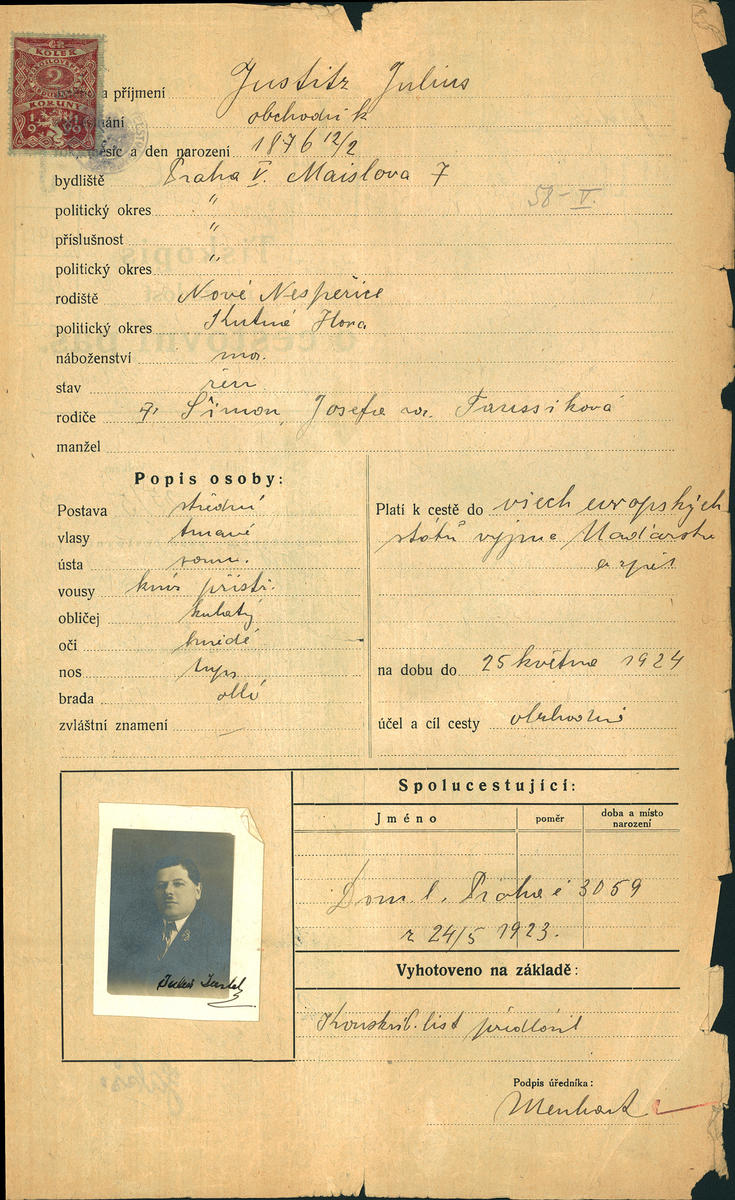 KOLEK
2
KORUNY
1919
a příjmení Justitz Julius
obchodník
měsíc a den narození 1876 12/2
bydliště Praha V. Maislova 7
58-V.
politický okres "
příslušnost "
politický okres "
rodiště Nové Nespeřice
politický okres Kutná Hora
náboženství mos.
stav žen
rodiče Šimon, Josefa roz. Taussiková
manžel
Popis osoby:
Postava střední
vlasy tmavé
ústa
vousy knír přistř.
obličej kulatý
oči hnědé
nos tupý
brada obl.
zvláštní znamení —
Platí k cestě do všech evropských
států vyjma Maďarska
a zpět
na dobu do 25 května 1924
účel a cíl cesty obchodní
Spolucestující:
Jméno poměr doba a místo narození
Dom. l. Praha č 3059
z 24/5 1923.
Vyhotoveno na základě:
Konskrib. list předložil
Podpis úředníka: